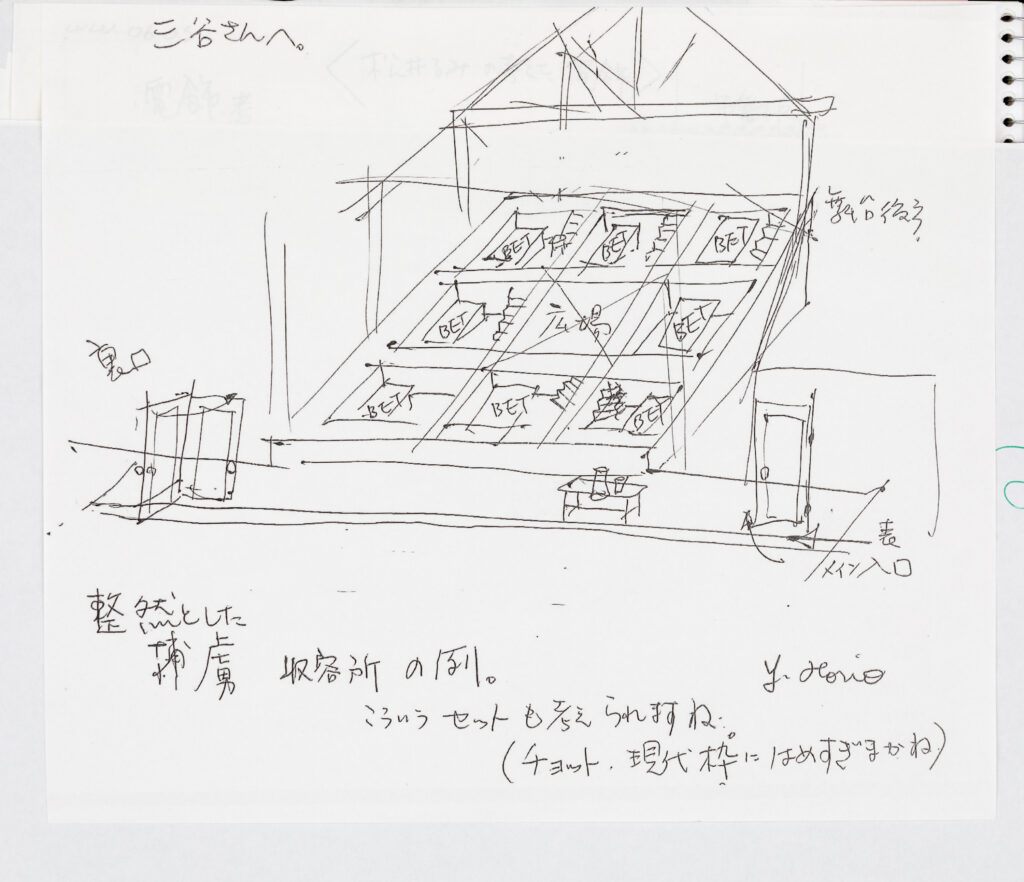 三谷さんへ。
舞台後方
BET
BET
BET
BET
広場
BET
BET
BET
BET
裏口
表
メイン入口
整然とした
捕虜 収容所の例。
こういうセットも考えられますね.
(チョット、現代枠にはめすぎまかね)
Y. Horio